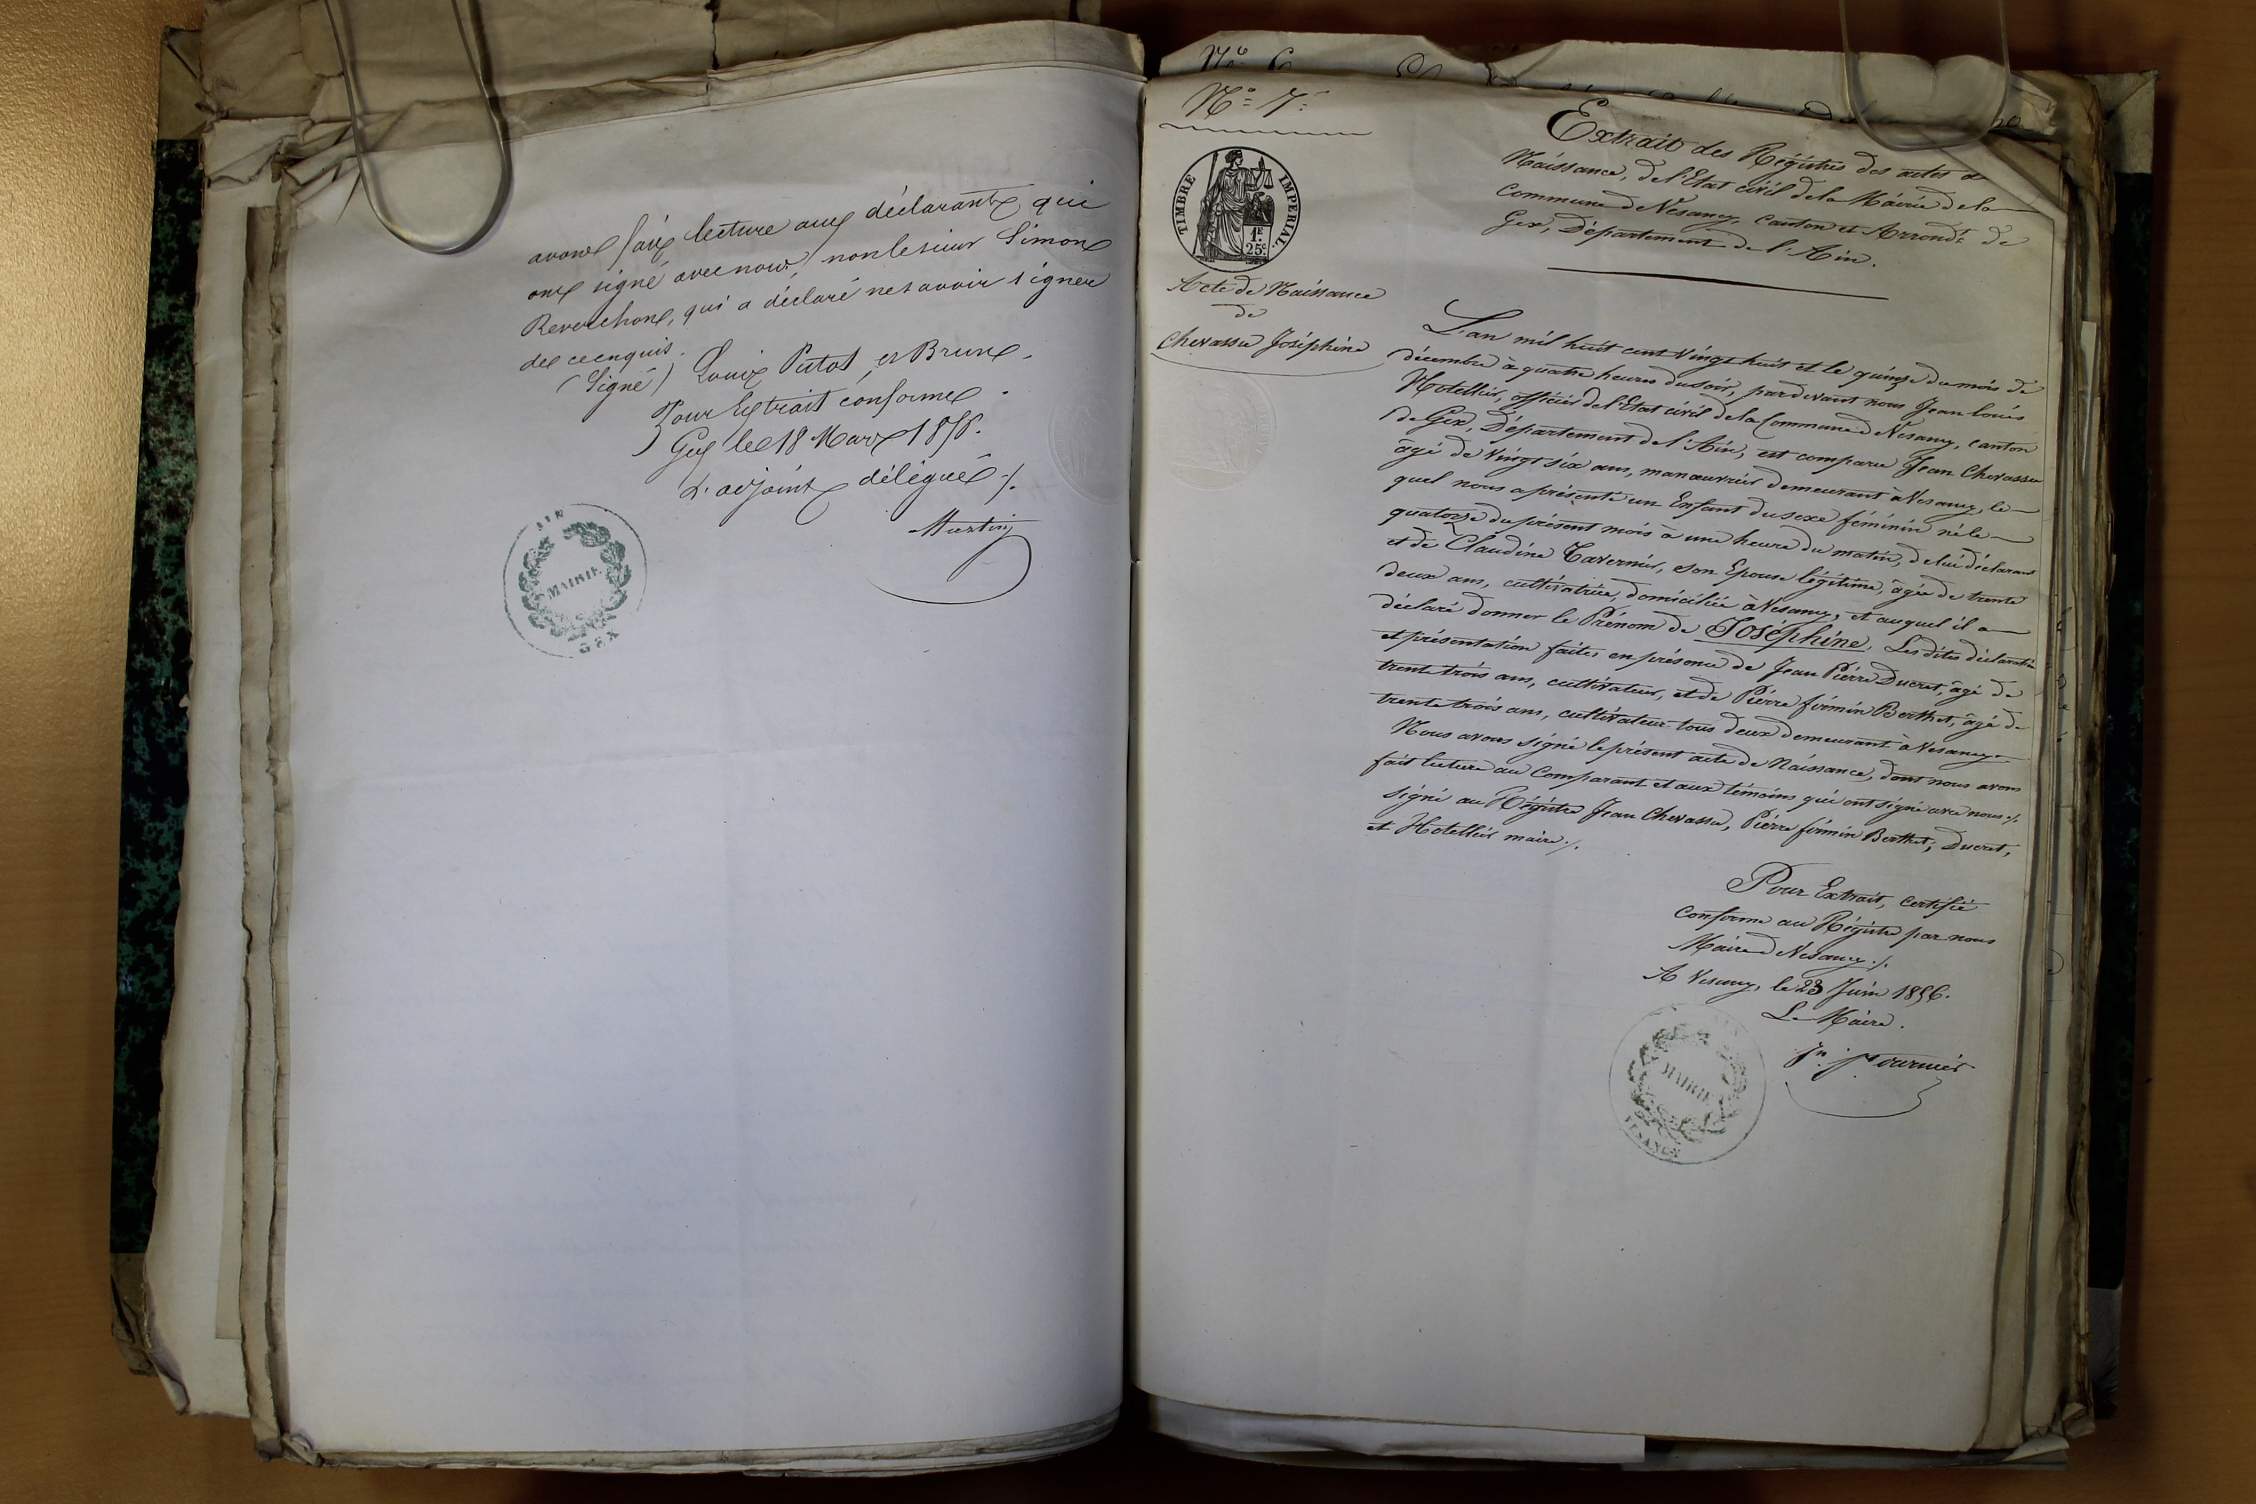 avons fait lecture aux déclarants qui
ont signé avec nous, non le sieur Simon
Reverchon, qui a déclaré ne savoir signer
de ce enquis.
(Signé) Louis Putod, et Brun.
Pour Extrait conforme
Gex le 18 Mars 1856.
L'adjoint délégué ./.
Martin
MAIRIE
GEX
AIN
N° 7.
TIMBRE IMPERIAL.
1F.
25c.
Acte de Naissance
de
Chevassu Joséphine
Extrait des Régistres des actes de
Naissance, de l'Etat civil de la Mairie de la
Commune de Vesancy, canton et Arrondt. de
Gex, Département de l'Ain.
L'an mil huit cent vingt huit et le quinze du mois de
décembre à quatre heures du soir, par devant nous Jean louis
Hotellier, officier de l'Etat civil de la Commune de Vesancy, canton
de Gex, Département de l'Ain, est comparu Jean Chevassu
âgé de vingt six ans, manœuvrier demeurant à Vesancy, le
quel nous a présenté un Enfant du sexe féminin né le
quatorze du présent mois à une heure du matin, de lui déclarant
et de Claudine Tavernier, son Epouse légitime, âgée de trente
deux ans, cultivatrice, domiciliée à Vesancy, et auquel il a
déclaré donner le Prénom de Joséphine. Les dites déclaration
et présentation faites en présence de Jean Pierre Ducret, âgé de
trente trois ans, cultivateur, et de Pierre firmin Berthet, âgé de
trente trois ans, cultivateur tous deux demeurant à Vesancy.
Nous avons signé le présent acte de Naissance, dont nous avons
fait lecture au Comparant et aux témoins qui ont signé avec nous ./.
signé au Régistre Jean Chevassu, Pierre firmin Berthet, Ducret,
et Hotellier maire ./.
Pour Extrait, certifié
Conforme au Régistre par nous
Maire de Vesancy ./.
A Vesancy, le 23 Juin 1856.
Le Maire.
Jn. Fournier
MAIRIE
VESANCY